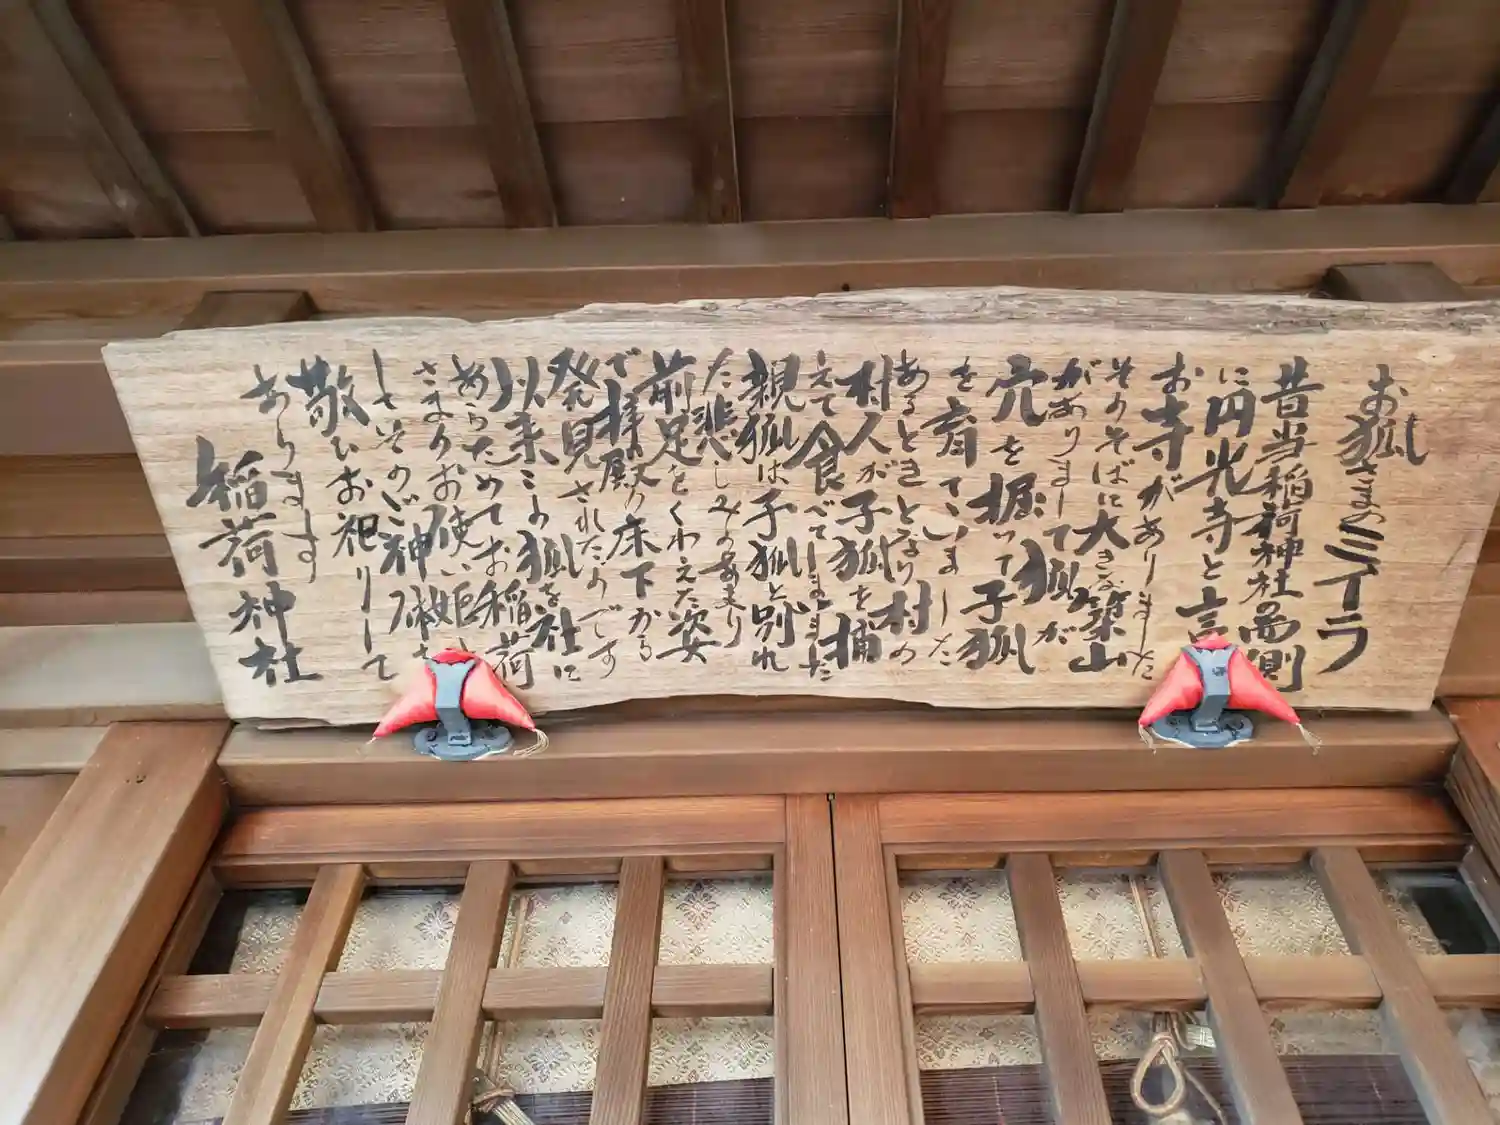 お狐さまのミイラ
昔当稲荷神社西側
に円光寺と言
お寺がありました
そのそばに大きな築山
がありまして狐が
穴を掘って子狐
を育てていました
あるときとなり村の
村人が子狐を捕
えて食べてしまいました
親狐は子狐と別れ
た悲しみのあまり
前足をくわえた姿
で拝殿の床下から
発見されたのです
以来この狐を社に
あらためてお稲荷
さまのお使い姫
してそのご神徳を
敬いお祀りして
あります
稲荷神社